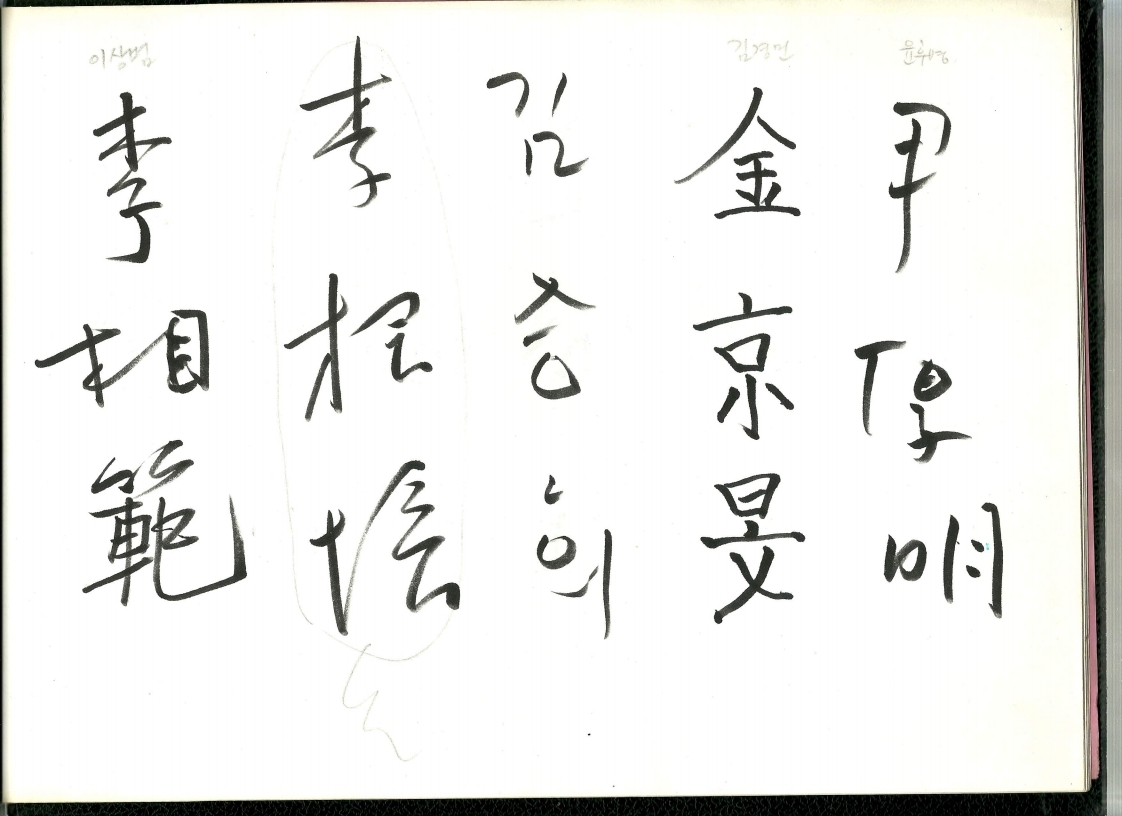 윤후명
尹厚明
김경민
金京旻
김승희
李根培
이상범
李相範